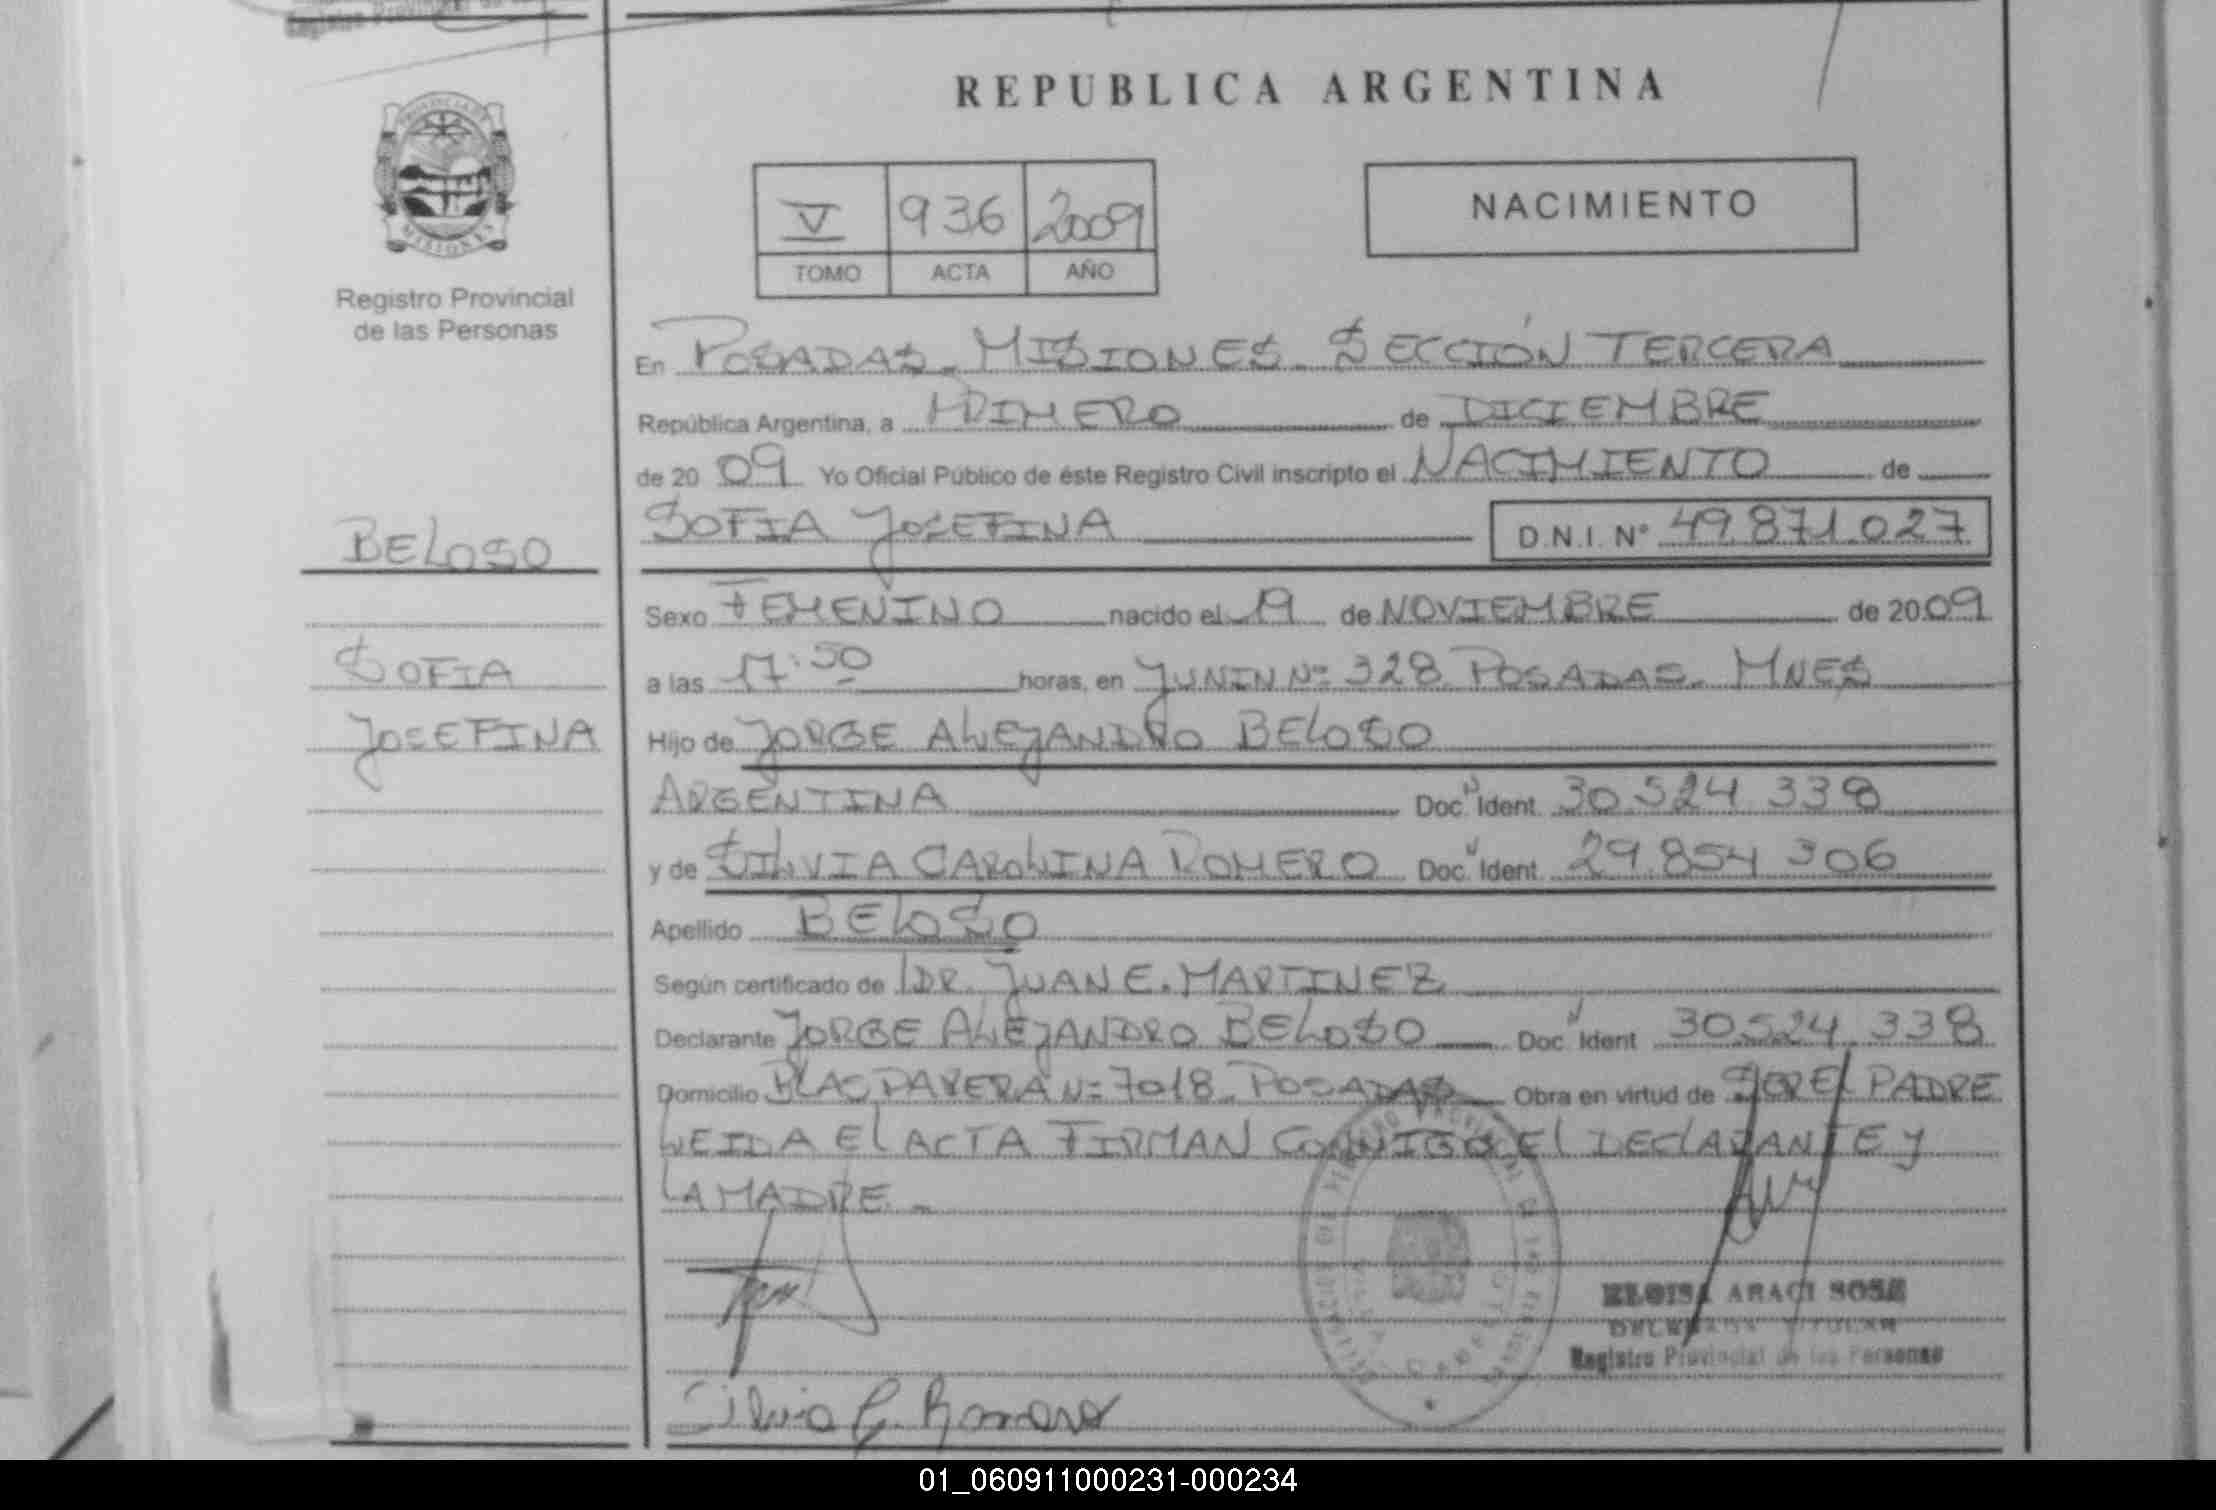 REPUBLICA ARGENTINA
MISIONES
Registro Provincial
de las Personas
V 936 2009
TOMO ACTA AÑO
NACIMIENTO
En POSADAS. MISIONES. SECCIÓN TERCERA
República Argentina, a PRIMERO de DICIEMBRE
de 20 09 Yo Oficial Público de éste Registro Civil inscripto el NACIMIENTO de
SOFIA JOSEFINA D.N.I. Nº 49.871.027
BELOSO
SOFIA
JOSEFINA
Sexo FEMENINO nacido el 19 de NOVIEMBRE de 2009
a las 17:50 horas, en JUNIN Nº 328 POSADAS. MNES
Hijo de JORGE ALEJANDRO BELOSO
ARGENTINA Doc. Ident. 30.524.338
y de SILVIA CAROLINA ROMERO Doc. Ident. 29.854.306
Apellido BELOSO
Según certificado de DR. JUAN E. MARTINEZ
Declarante JORGE ALEJANDRO BELOSO Doc. Ident 30.524.338
Domicilio BLAS PARERA Nº 7018. POSADAS Obra en virtud de SER EL PADRE
LEIDA EL ACTA FIRMAN CONMIGO EL DECLARANTE Y
LA MADRE.-
ELOISA ARACI SOSA
DELEGADA TITULAR
Registro Provincial de las Personas
Silvia C. Romero
01_060911000231-000234